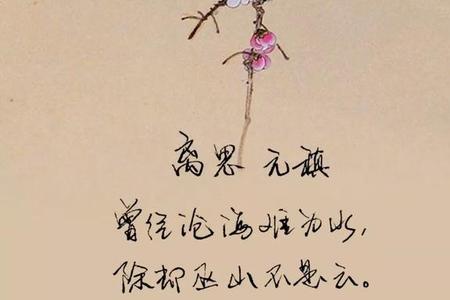 离思 元稹
曾经沧海难为水,
除却巫山不是云。